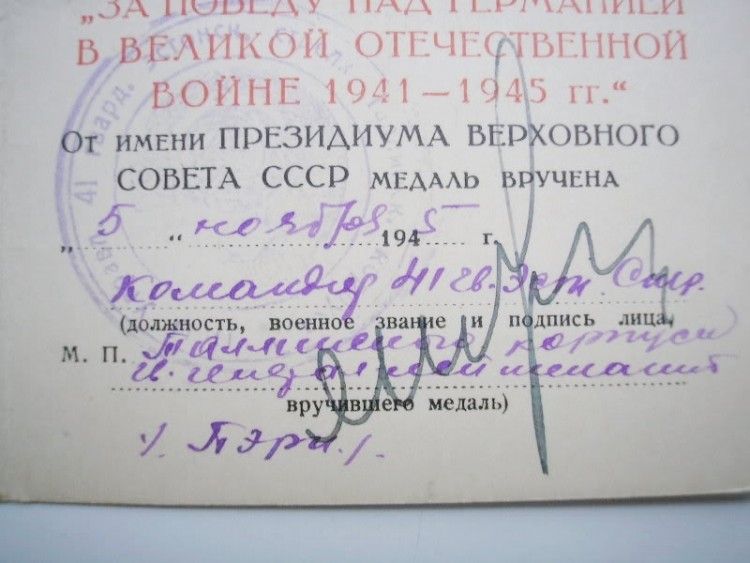 „ЗА ПОБЕДУ НАД ГЕРМАНИЕЙ
В ВЕЛИКОЙ ОТЕЧЕСТВЕННОЙ
ВОЙНЕ 1941—1945 гг.“
От имени ПРЕЗИДИУМА ВЕРХОВНОГО
СОВЕТА СССР МЕДАЛЬ ВРУЧЕНА
„5“ ноября 1945 г.
Командир 41 гв. Эст. Стр.
(должность, военное звание и подпись лица,
М. П. Таллинского корпуса
гв. генерал-лейтенант
вручившего медаль)
/. Пэрн./.
41 гвард. Эстонск. стрелк.